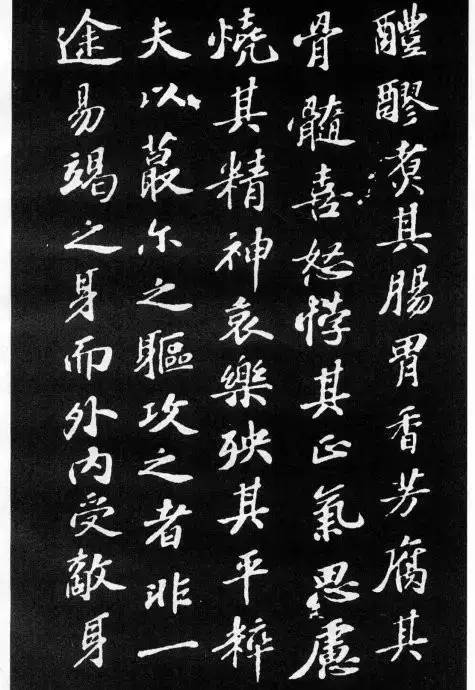 醴醪煑其腸胃香芳腐其
骨髓喜怒悖其正氣思慮
燒其精神哀樂殃其平粹
夫以蕞尔之驅攻之者非一
途易竭之身而外内受敵身